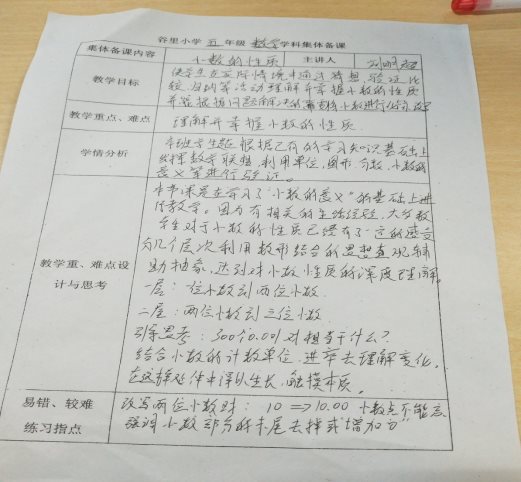 谷里小学 五 年级 数学 学科集体备课
集体备课内容 小数的性质 主讲人
教学目标 使学生在实际情境中通过猜想、验证、比
较、归纳等活动理解并掌握小数的性质
并能根据问题解决的需要将小数进行化简、改写
教学重点、难点 理解并掌握小数的性质.
学情分析 本班学生能根据已有的学习知识基础上
发挥数学联想,利用单位,图形,分数,小数的
意义等进行验证。
教学重、难点设计与思考 本节课是在学习了"小数的意义"的基础上进
行教学。因为有相关的生活经验,大多数
学生对于小数的性质已经有了一定的感
分几个层次利用数形结合的思想直观辅
助抽象,达到对小数性质的深度理解。
一层:一位小数到两位小数.
二层:两位小数到三位小数.
引导思考:300个0.001又相当于什么?
结合小数的计数单位,进率去理解变化,
在这样 中得以生长,触摸本质。
易错、较难 改写两位小数时: 10 ⇒ 10.00 小数点不能忘
练习指点 强调小数部分的末尾去掉或增加"0"